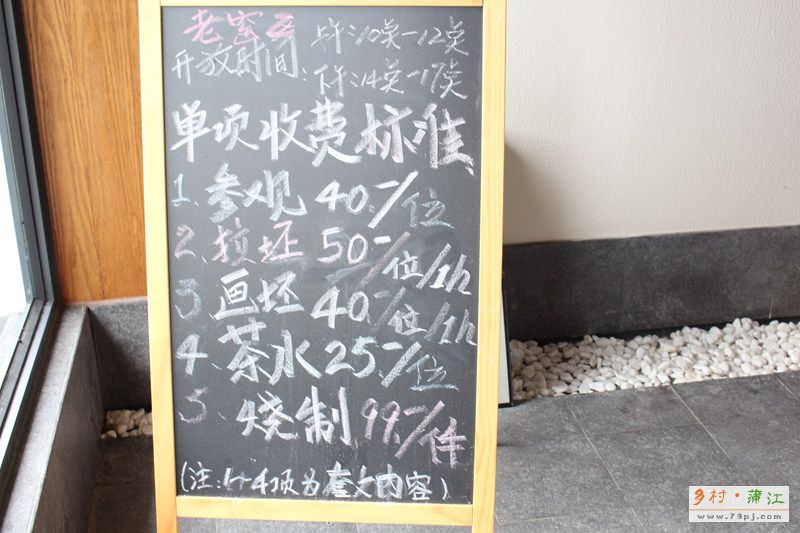 老窑
开放时间: 上午:10点-12点
下午:14点-17点
单项收费标准
1、参观 40.-/位
2、拉坯 50-/位/1h
3 画坯 40.-/位/1h
4、茶水 25.-/位
5、烧制 99.-/件
(注:1+4项为套 内容)
乡村·蒲江
www.73pj.com